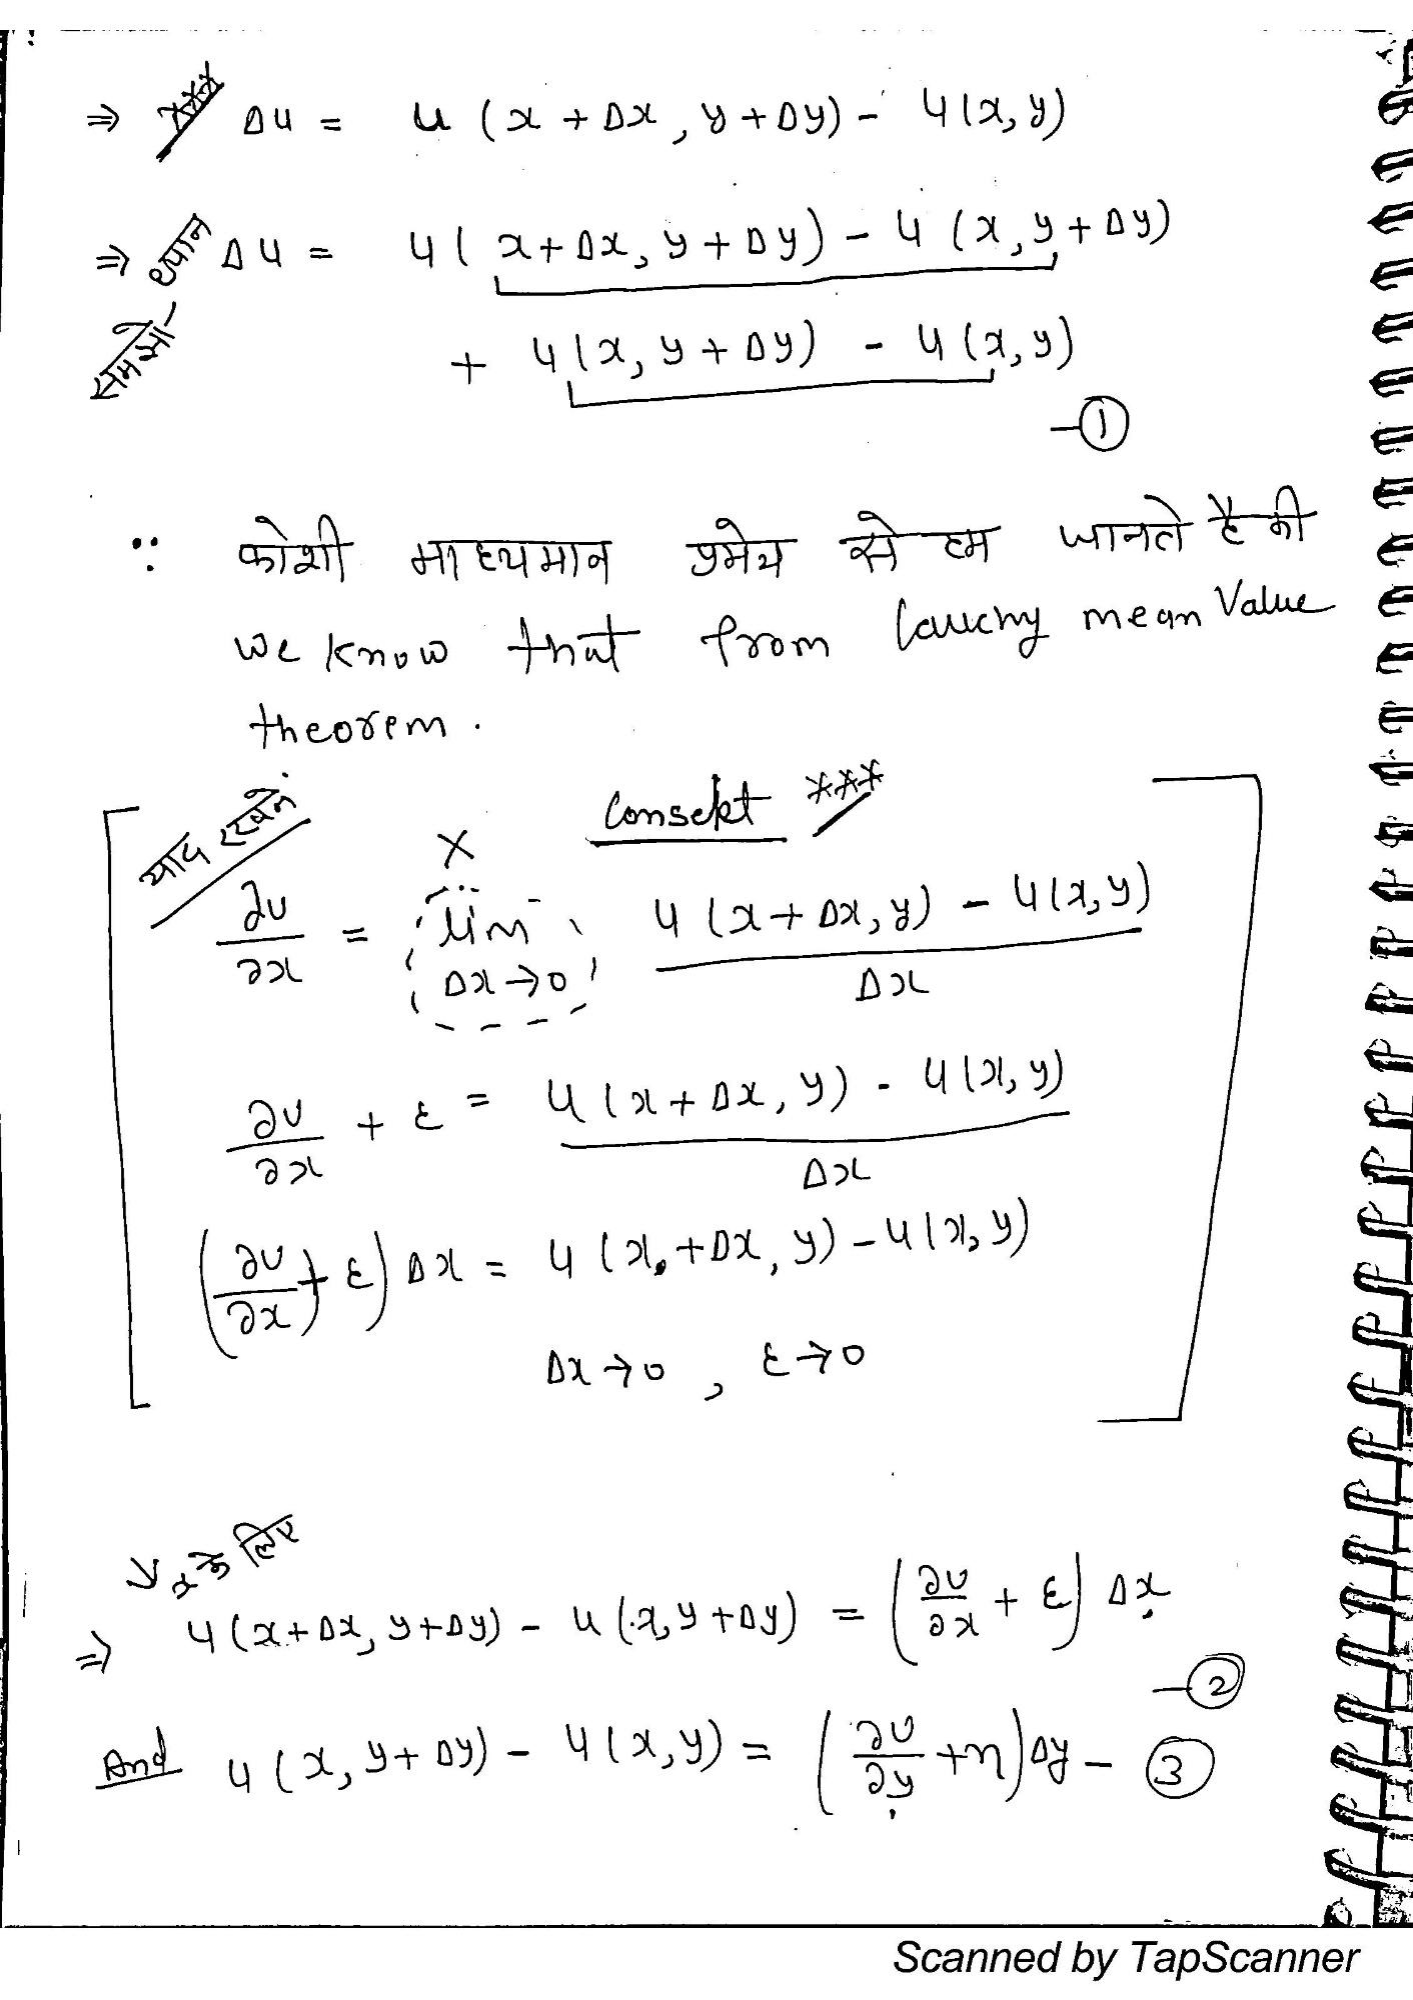 ⇒ *** Δu = u (x + Δx, y + Δy) - u(x, y)
⇒ ध्यान Δu = u( x + Δx, y + Δy) - u (x, y + Δy)
समझो
+ u(x, y + Δy) - u(x, y)
- ①
∵ कोशी माध्यमान प्रमेय से हम जानते है की
we know that from Cauchy mean Value
theorem.
याद रखने Consekt ***
X
∂u/∂x = lim Δx→0 u (x + Δx, y) - u(x, y) / Δx
∂u/∂x + ε = u (x + Δx, y) - u(x, y) / Δx
(∂u/∂x + ε) Δx = u (x + Δx, y) - u(x, y)
Δx → 0 , ε → 0
↓ x के लिए
⇒ u(x + Δx, y + Δy) - u (x, y + Δy) = (∂u/∂x + ε) Δx
- ②
And u (x, y + Δy) - u(x, y) = (∂u/∂y + η) Δy - ③
Scanned by TapScanner